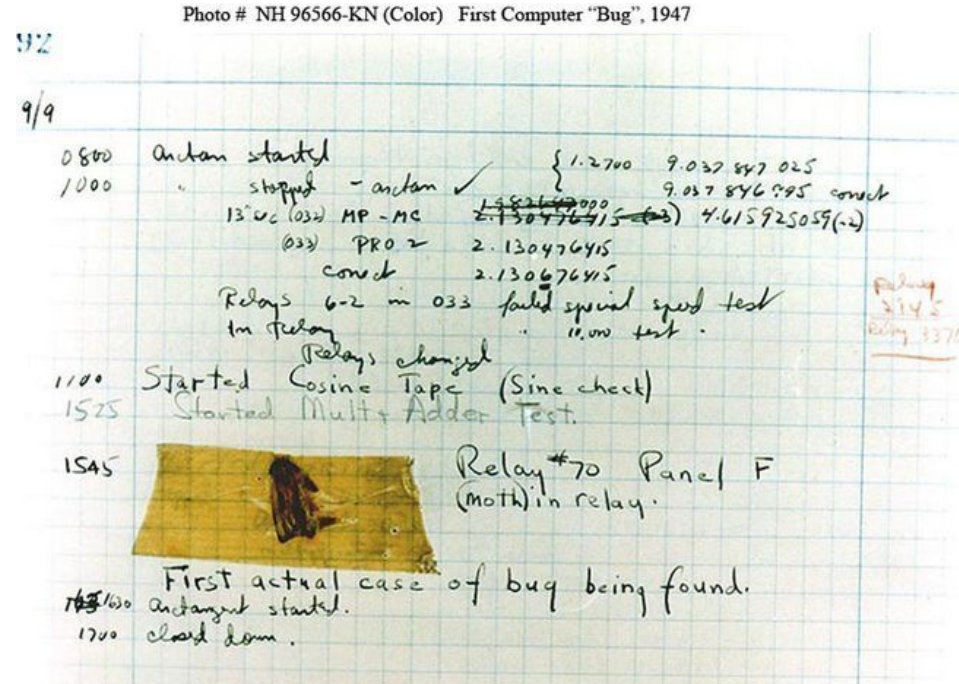 Photo # NH 96566-KN (Color) First Computer “Bug”, 1947
92
9/9
0800 arctan started { 1.2700 9.037 847 025
1000 " stopped - arctan ✓ 9.037 846 995 correct
(032) MP - MC 2.130476415 4.615925059(-2)
(033) PRO 2 2.130476415
correct 2.130676415
Relays 6-2 in 033 failed special speed test
In Relay " 10,000 test .
Relays changed
Relay
2145
Relay 3370
1100 Started Cosine Tape (Sine check)
1525 Started Mult + Adder Test.
1545 Relay #70 Panel F
(moth) in relay.
First actual case of bug being found.
1630 arctangent started.
1700 closed down.